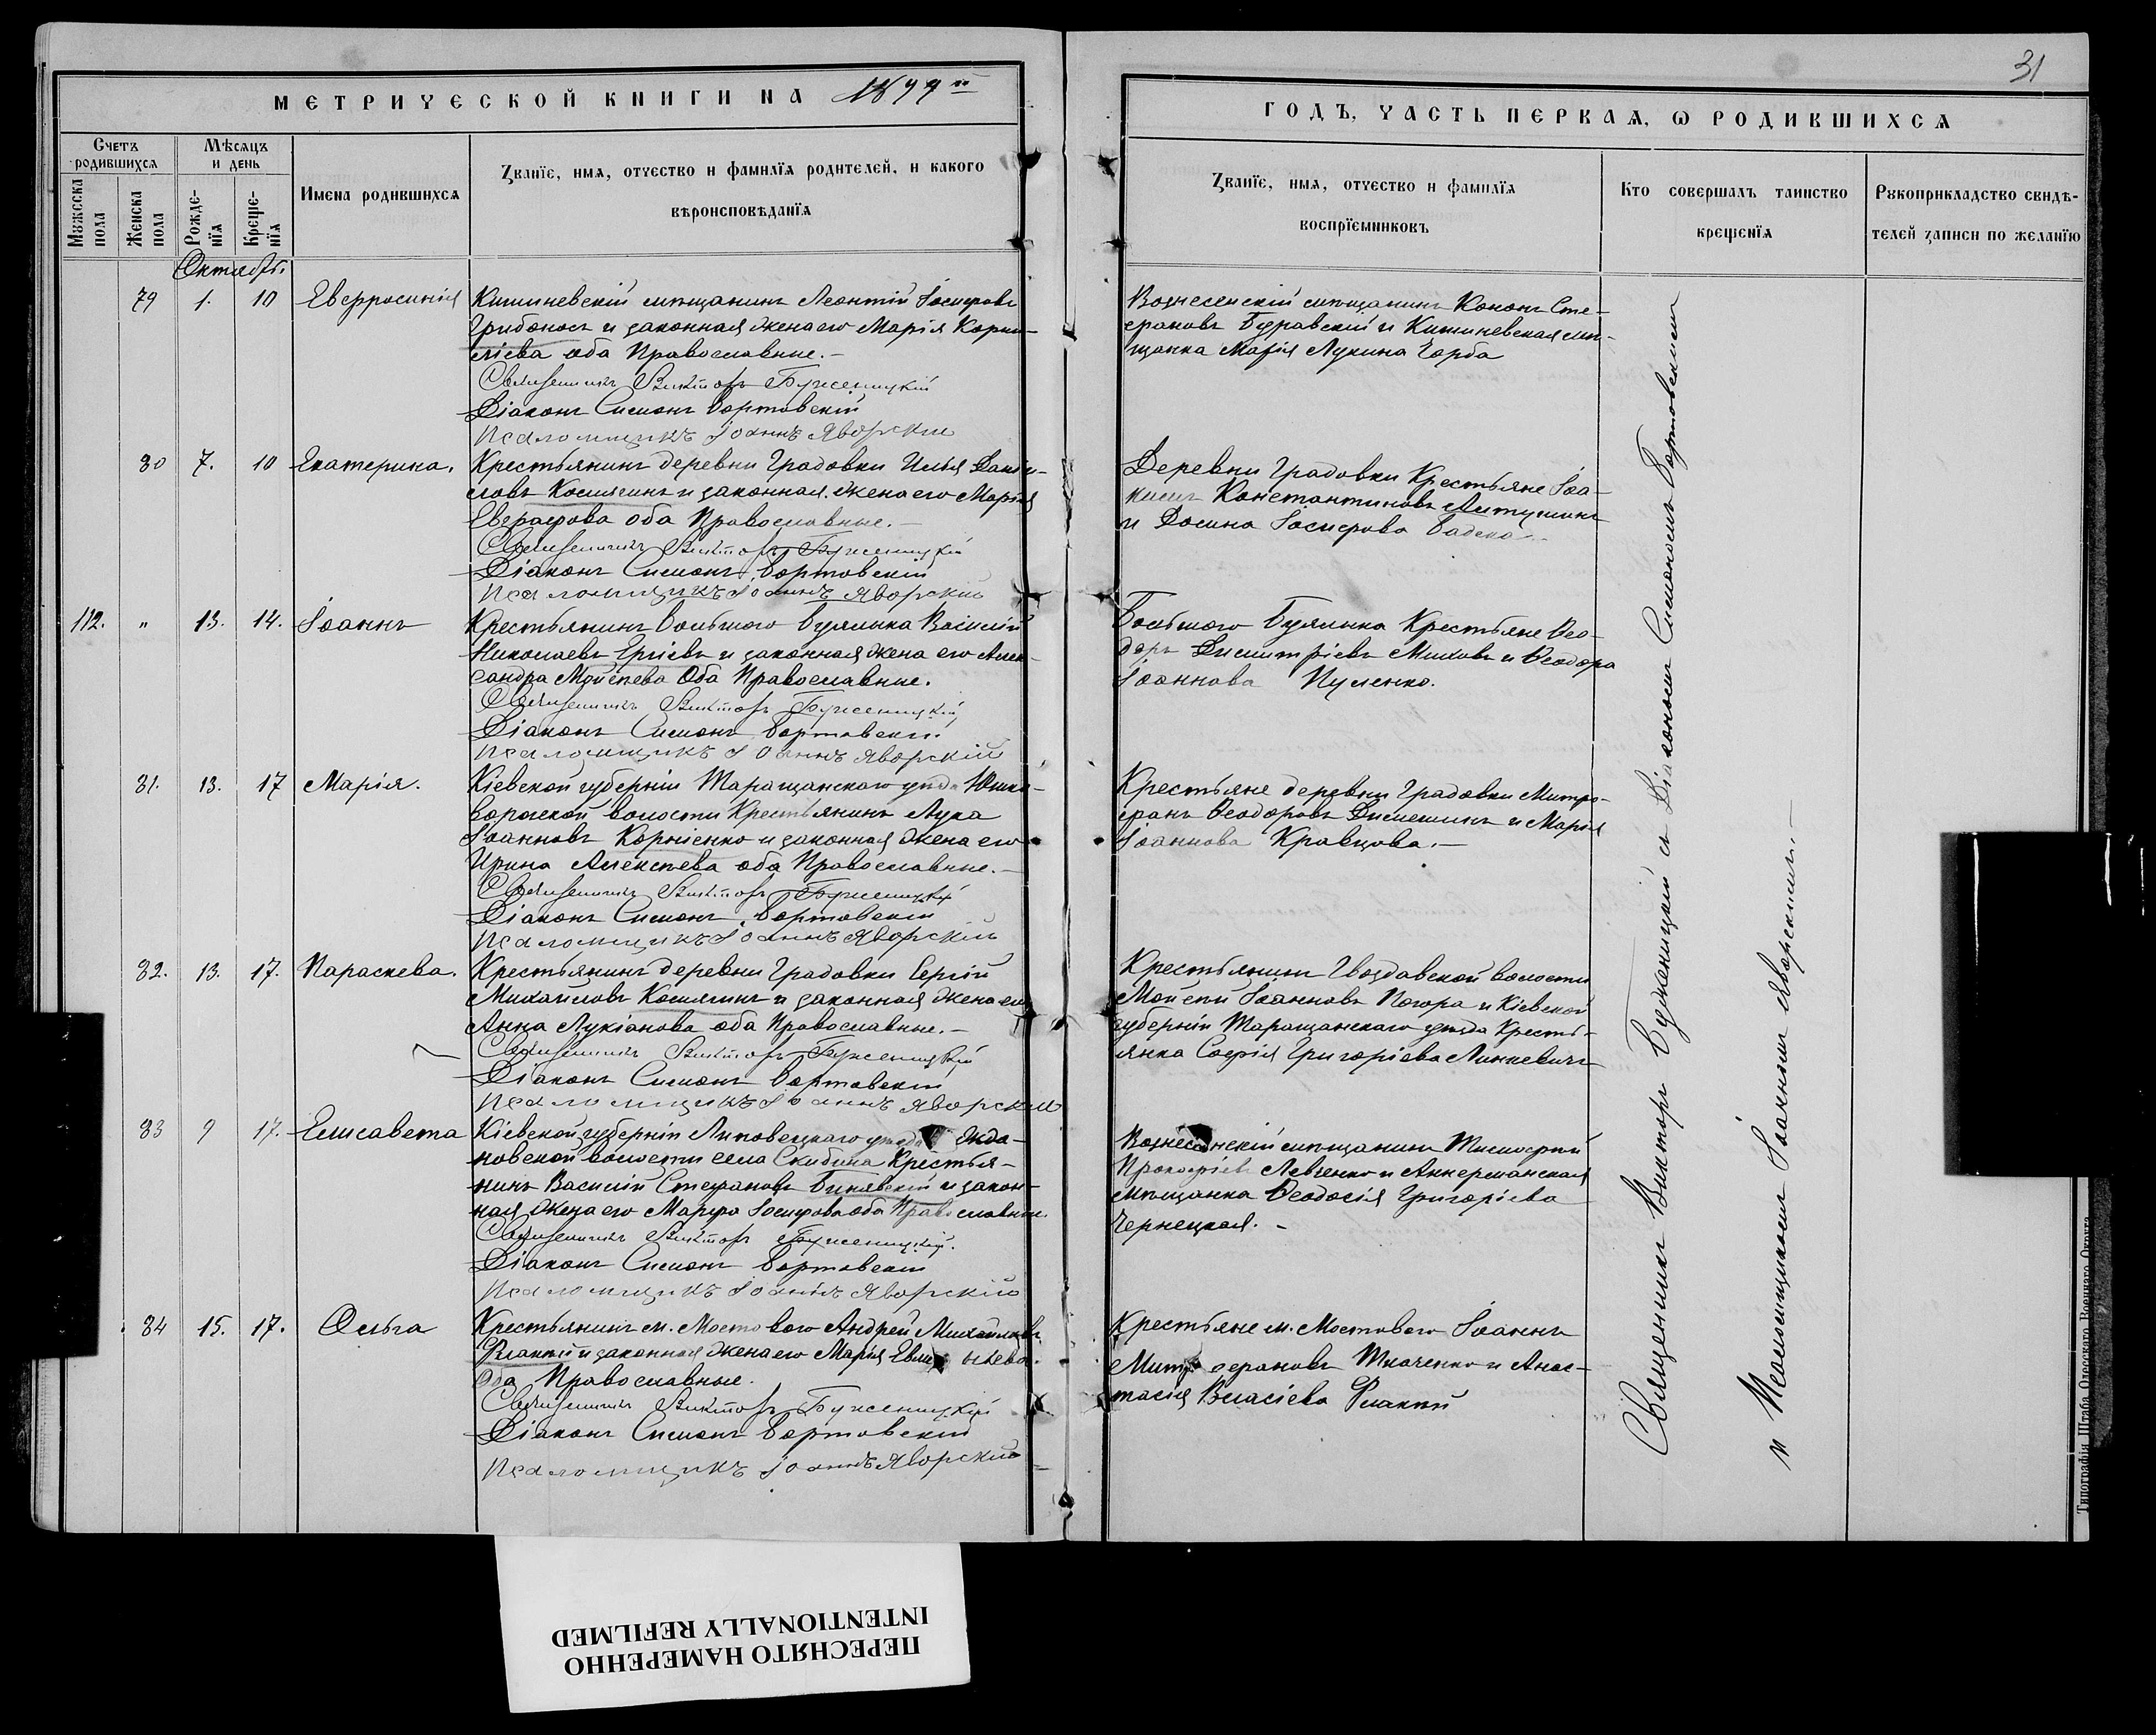 МЕТРИЧЕСКОЙ КНИГИ НА 1899й
Счетъ родившихся
Мѣсяцъ и день
Мужеска пола
Женска пола
Рожде-нія
Креще-нія
Имена родившихся
Званіе, имя, отчество и фамилія родителей, и какого
вѣроисповѣданія
Октябрь.
79 1. 10 Евфросинія Кишиневскій мѣщанинъ Леонтій Іосифовъ
Грибоносъ и законная жена его Марія Корни-
ліева оба Православные.-
Священникъ Викторъ Буженицкій
Діаконъ Симонъ Бортовскій
Псаломщикъ Іоаннъ Яворскій
80 7. 10 Екатерина. Крестьянинъ деревни Градовки Илья Дани-
ловъ и законная жена его Марія
Евграфова оба Православные.-
Священникъ Викторъ Буженицкій
Діаконъ Симонъ Бортовскій
Псаломщикъ Іоаннъ Яворскій
112. " 13. 14. Іоаннъ Крестьянинъ Большого Буялыка Василій
Николаевъ и законная жена его Алек-
сандра Мойсѣева Оба Православные.
Священникъ Викторъ Буженицкій
Діаконъ Симонъ Бортовскій
Псаломщикъ Іоаннъ Яворскій
81. 13. 17 Марія. Кіевской губерніи Таращанскаго уѣзда
волости Крестьянинъ Лука
Іоанновъ Корніенко и законная жена его
Ирина Алексѣева оба Православные.-
Священникъ Викторъ Буженицкій
Діаконъ Симонъ Бортовскій
Псаломщикъ Іоаннъ Яворскій
82. 13. 17. Параскева. Крестьянинъ деревни Градовки Сергій
Михайловъ и законная жена его
Анна Лукіанова оба Православные.-
Священникъ Викторъ Буженицкій
Діаконъ Симонъ Бортовскій
Псаломщикъ Іоаннъ Яворскій
83 9 17. Елисавета Кіевской губерніи Липовецкаго уѣзда Жда-
новской волости села Скибина Крестья-
нинъ Василій Стефановъ и закон-
ная жена его Марфа Іосифова оба Православные.
Священникъ Викторъ Буженицкій.
Діаконъ Симонъ Бортовскій
Псаломщикъ Іоаннъ Яворскій
84 15. 17. Ольга Крестьянинъ м. Мостового Андрей Михайловъ
и законная жена его Марія
Оба Православные.
Священникъ Викторъ Буженицкій
Діаконъ Симонъ Бортовскій
Псаломщикъ Іоаннъ Яворскій
31
ГОДЪ, ЧАСТЬ ПЕРВАЯ, Ѡ РОДИВШИХСЯ
Званіе, имя, отчество и фамилія
воспріемниковъ
Кто совершалъ таинство
крещенія
Рукоприкладство свидѣ-
телей записи по желанію
Вознесенскій мѣщанинъ Кононъ Сте-
фановъ Буравскій и Кишиневская мѣ-
щанка Марія Лукина Горба
Деревни Градовки Крестьяне Іоа-
кимъ Константиновъ
и Домна Іосифова
Большого Буялыка Крестьяне Ѳео-
доръ Димитріевъ и Ѳеодора
Іоаннова Пуленко.
Крестьяне деревни Градовки Митро-
фанъ Ѳеодоровъ и Марія
Іоаннова Кравцова.-
Крестьянинъ Гвоздавской волости
Мойсей Іоанновъ и Кіевской
губерніи Таращанскаго уѣзда Кресть-
янка Софія Григоріева Линкевичъ
Вознесенскій мѣщанинъ Тимофей
Прокофіевъ Левченко и Аккерманская
мѣщанка Ѳеодосія Григоріева
Чернецкая.-
Крестьяне м. Мостового Іоаннъ
Митрофановъ Ткаченко и Анас-
тасія Власіева
Священникъ Викторъ Буженицкій съ Діакономъ Симономъ Бортовскимъ
и Псаломщикомъ Іоанномъ Яворскимъ.-
Типографія Штаба Одесскаго Военнаго Округа
ПЕРЕСНЯТО НАМЕРЕННО
INTENTIONALLY REFILMED